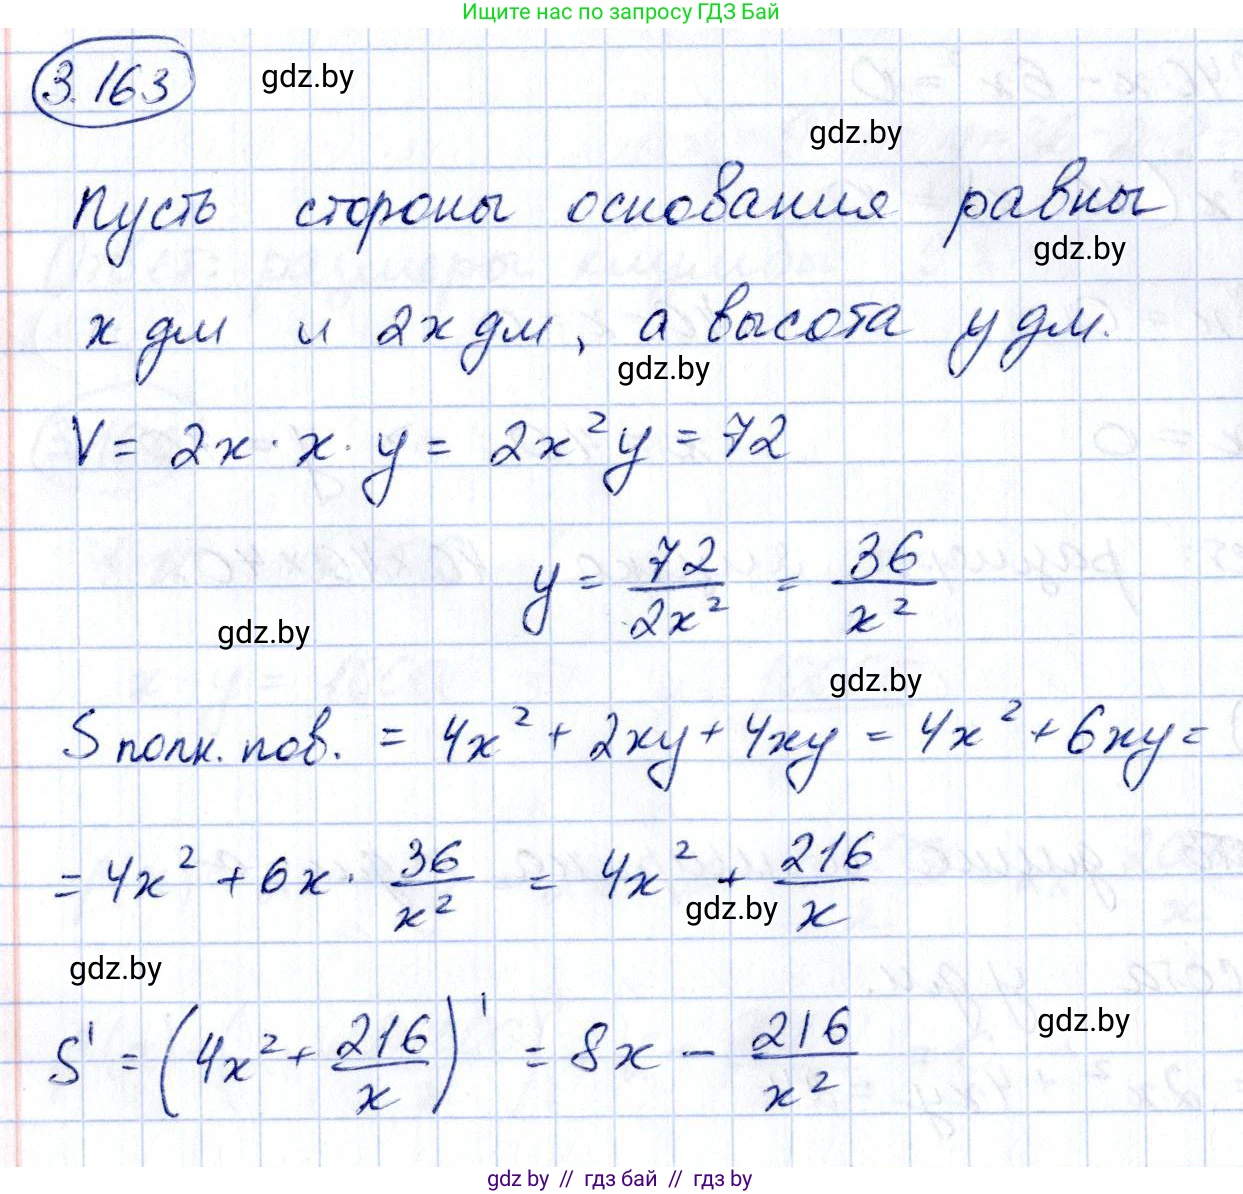 Ищите нас по запросу ГДЗ Бай
3.163 gdz.by
gdz.by
Пусть стороны основания равны
gdz.by
x дм и 2x дм, а высота y дм.
gdz.by
V = 2x · x · y = 2x² y = 72
y = 72/2x² = 36/x²
gdz.by
gdz.by
S полн. пов. = 4x² + 2xy + 4xy = 4x² + 6xy =
= 4x² + 6x · 36/x² = 4x² + 216/x
gdz.by
gdz.by
gdz.by
S' = (4x² + 216/x)' = 8x − 216/x²
gdz.by // гдз бай // гдз by